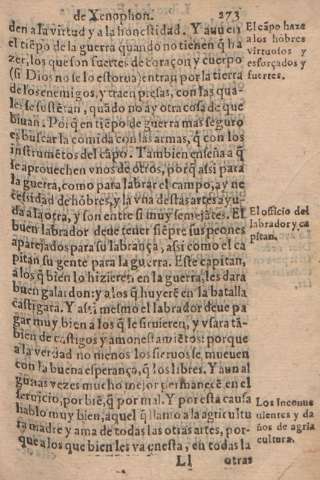 de Xenophon. 273
den a la virtud y a la honestidad. Y aun en
el tiẽpo de la guerra quando no tienen q̃ ha
zer, los que son fuertes de coraçon y cuerpo
(si Dios no se lo estorua) entran por la tierra
de los enemigos, y traen presas, con las qua-
les se sustẽtan, quãdo no ay otra cosa de que
biuan. Porq̃ en tiẽpo de guerra mas seguro
es buscar la comida con las armas, q̃ con los
instrumẽtos del cãpo. Tambien enseña a q̃
se aprouechen vnos de otros, porq̃ assi para
la guerra, como para labrar el campo, ay ne
cessidad de hõbres, y la vna destas artes ayu-
da a la otra, y son entre si muy semejãtes. El
buen labrador deue tener siẽpre sus peones
aparejados para su labrança, assi como el ca
pitan su gente para la guerra. Este capitan,
a los q̃ bien lo hizieren en la guerra, les dara
buen galardon: y a los q̃ huyerẽ en la batalla
castigara. Y assi mesmo el labrador deue pa
gar muy bien a los q̃ le siruieren, y vsara tã-
bien de castigos y amonestamiẽtos: porque
a la verdad no menos los sieruos se mueuen
con la buena esperança, q̃ los libres. Y aun al
gunas vezes mucho mejor permanecẽ en el
seruicio, por biẽ, q̃ por mal. Y por esta causa
hablo muy bien, aquel q̃ llamo a la agricultu
ra madre y ama de todas las otras artes, por-
que a los que bien les va en esta, en todas la
Ll otras
El cãpo haze
a los hõbres
virtuosos y
esforçados y
fuertes.
El officio del
labrador y ca
pitan.
Los inconue
nientes y da
ños de agria
cultura.